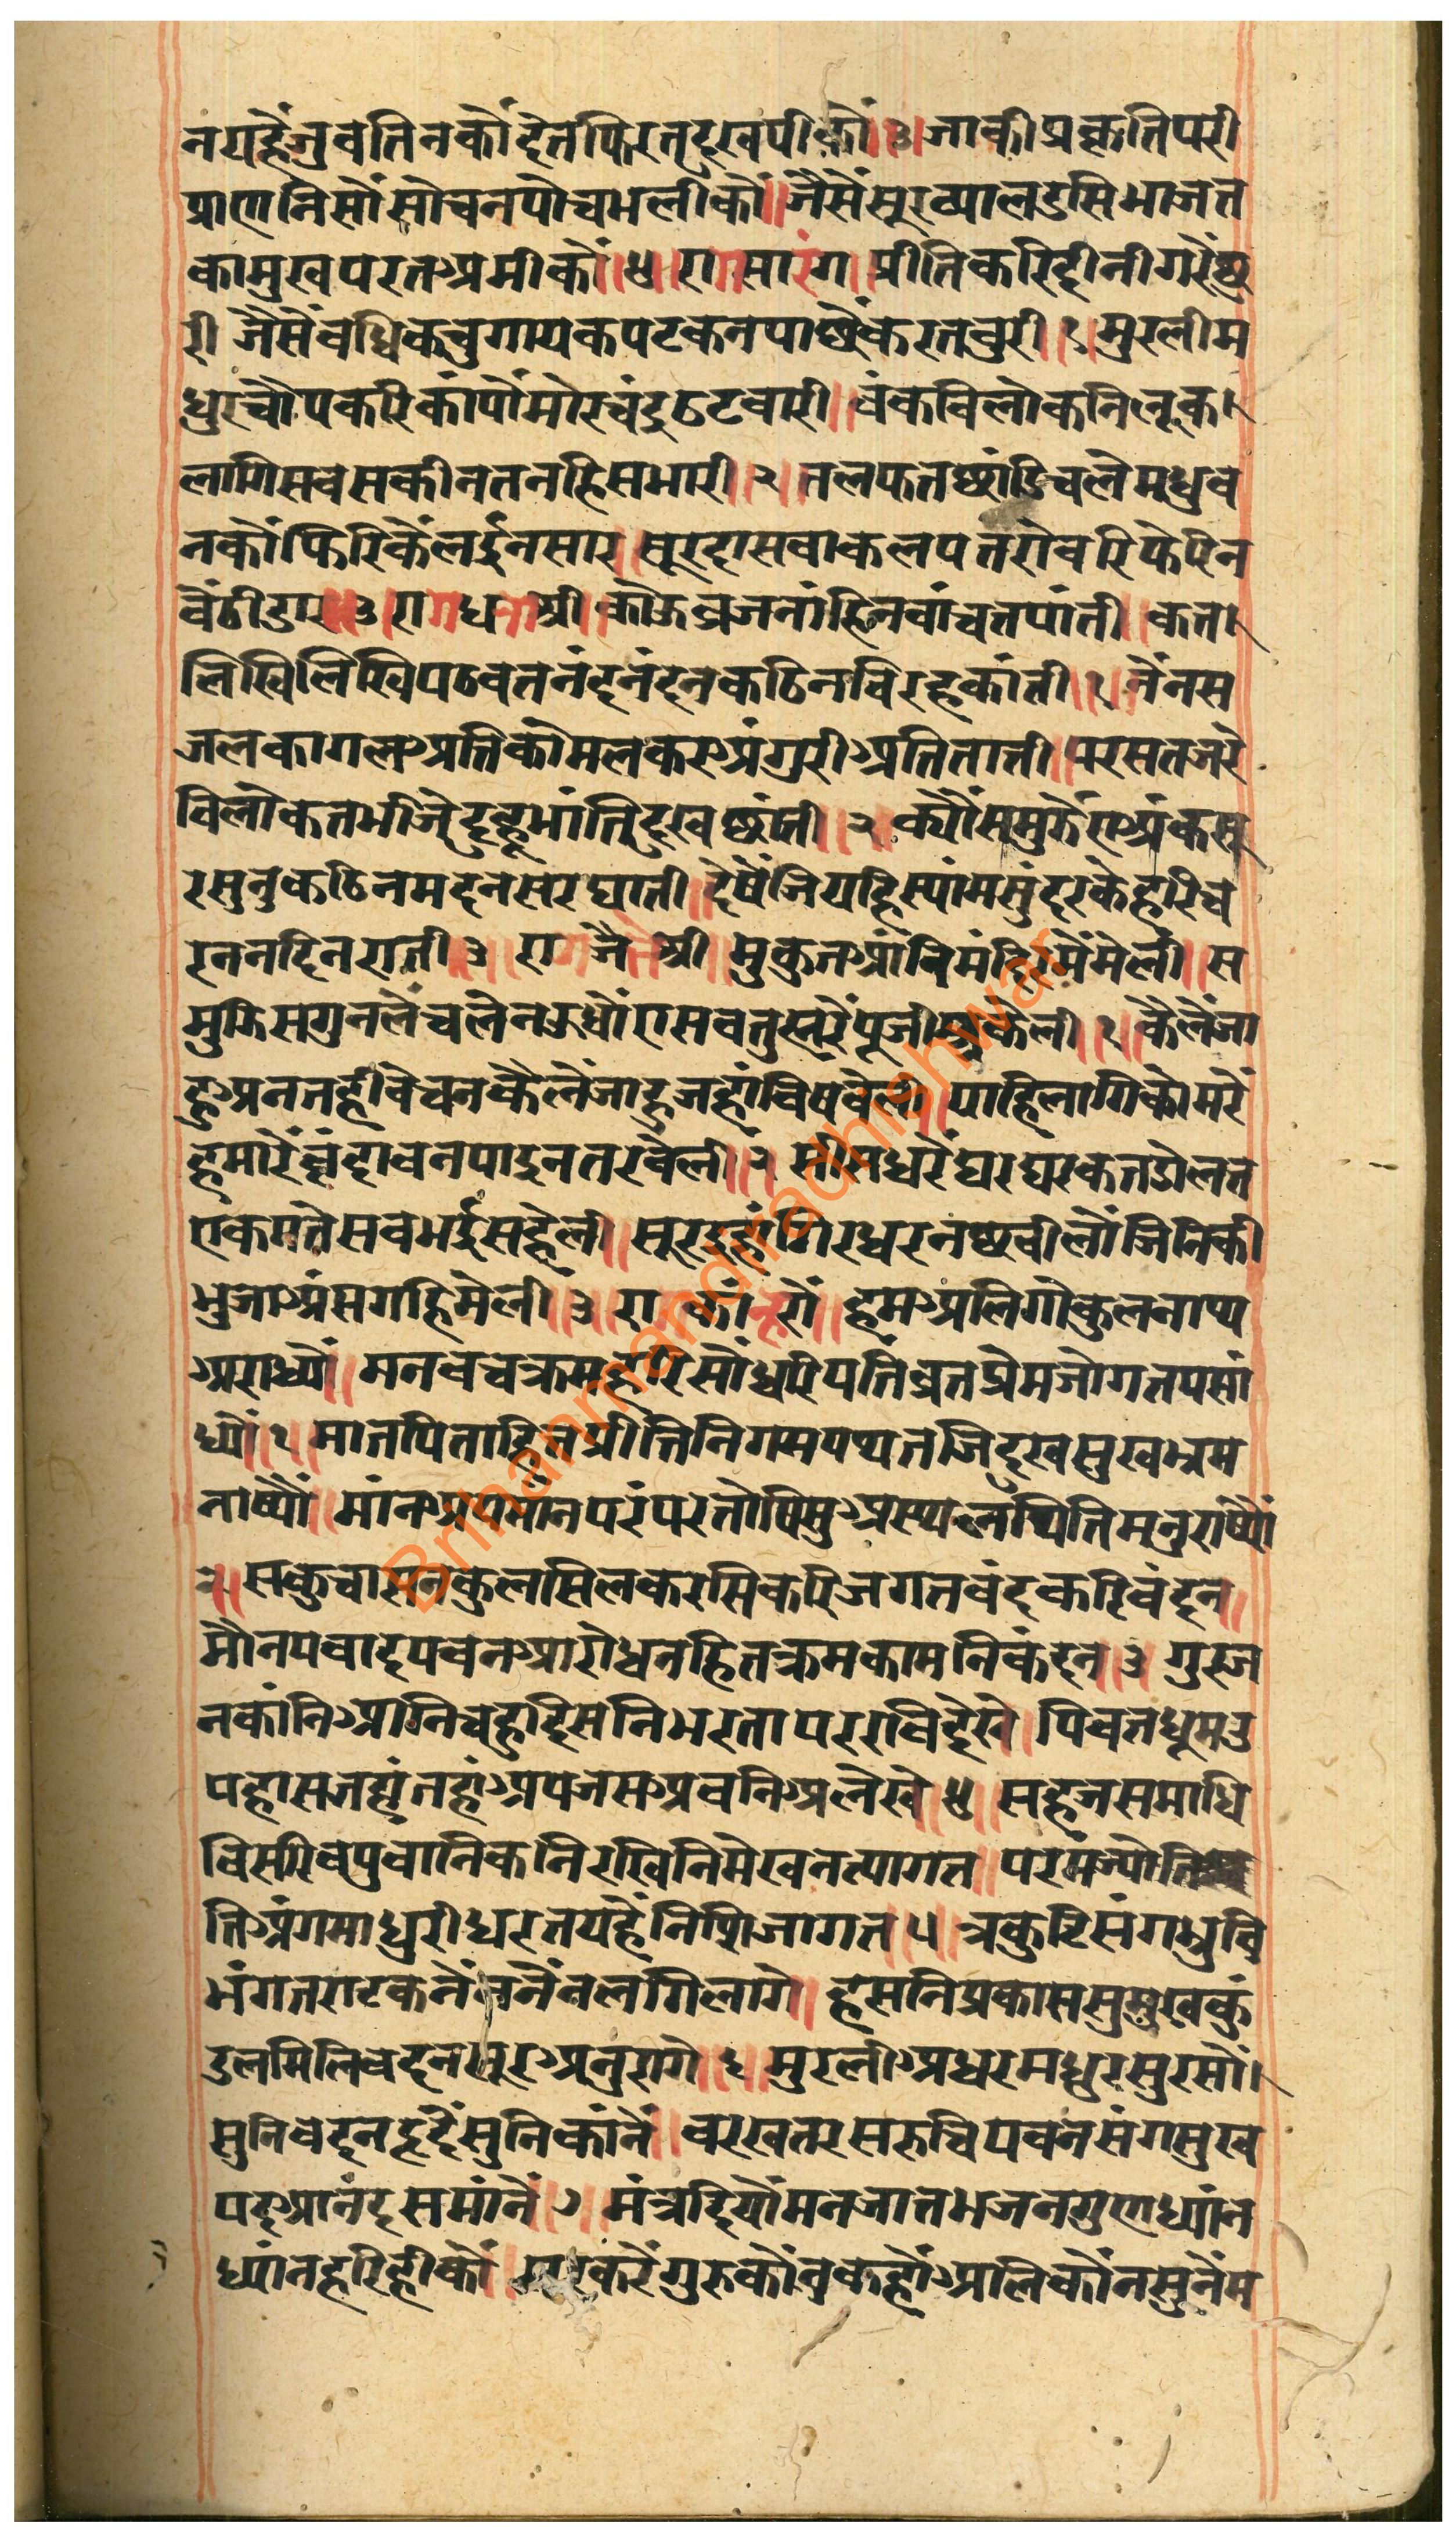 नयहैजुवतिनकौंदेतफिरतदुखपीकौं॥३॥जाकीप्रकृतिपरी
प्राणनिसौंसोचनपोचभलीकौं॥जैसैंसूरव्यालडसिभाजत
कामुखपरतअमीकौं॥४॥रागसारंग॥प्रीतिकरिदीनीगरैंछु
री जैसैंवधिकचुगायकपटकनपाछैंकरतवुरी॥१॥मुरलीम
धुरचौंपकरिकांपौंमोरचंद्रठटवारी॥वंकविलोकनिलूक।
लागिसवसकीनतनहिसभारी॥२॥तलफतछांडिचलेमधुव
नकौंफिरिकैंलईनसार॥सूरदासवाकलपतरोवरिफेरिन
वैंठीडार॥३॥रागधनाश्री॥कोऊव्रजनांहिनवांचतपांती॥कत।
लिखिलिखिपठवतनंदनंदनकठिनविरहकांती॥१॥नैंनस
जलकागलअतिकोमलकरअंगुरीअतिताती॥परसतजरै
विलोकतभीजेदुहूभांतिदुखछांती॥२॥क्यौंसमुझैएअंकसू
रसुनुकठिनमदनसरघाती॥देषैंजियहिस्यांमसुंदरकेहरिच
रननदिनराती॥३॥रागजैतश्री॥मुकुतआंनिमंदिरमैंमेली॥स
मुझिसगुनलैंचलेनऊधौंएसवतुह्मरैंपूजीअकेली॥१॥कैलैंजा
हुअनतहीवेचनकैलैंजाहुजहांविषवेली॥पाहिलागिकोमरैं
हमारैंवृंदावनपाइनतरवेली॥२॥सीसधरैंघरघरकतडोलत
एकमतेसवभईसहेली॥सूरइहांगिरधरनछवीलौंजिनिकी
भुजाअंसगहिमेली॥३॥रागकांन्हरौं॥हमअलिगोकुलनाथ्य
अराध्यौं॥मनवचक्रमहरिसौंधरिपतिव्रतप्रेमजोगतपसां
ध्यौं॥१॥मातपिताहितप्रीतिनिगमपथ्यतजिदुखसुखभ्रम
नाष्यौं॥मांनअपमांनपरंपरतोषिसुअस्थलथितिमनुराष्यौं
२॥सकुचासनकुलसिलकरसिकरिजगतवंदकरिवंदन॥
मौनपवादपवनआरोधनहितक्रमकामनिकंदन॥३॥गुरुज
नकांनिअग्निचहुदिसनिभरतापररविदेखे॥पिवतधूमउ
पहासजहांतहांअपजसअवनिअलेखे॥४॥सहजसमाधि
विसारिवपुवानिकनिरखिनिमेखनत्यागत॥परमंज्योति
तिअंगमाधुरीधरतयहैंनिशिजागत॥५॥त्रकुटिसंगभ्रुवि
भंगतराटकनैंननैंनलगिलागे॥हसनिप्रकाससुमुखकुं
डलमिलिवदनसूरअनुरागे॥६॥मुरलीअधरमधुरसुरसौं।
सुनिवेदनइदैंसुनिकांनैं॥वरखतरसरुचिपवनसंगसुख
पदआनंदसमांनैं॥७॥मंत्रदियौंमनजातभजनगुणध्यांन
ध्यांनहरिहीकौं॥ करैंगुरुकौंनुकहौंअलिकौंनसुनैंम